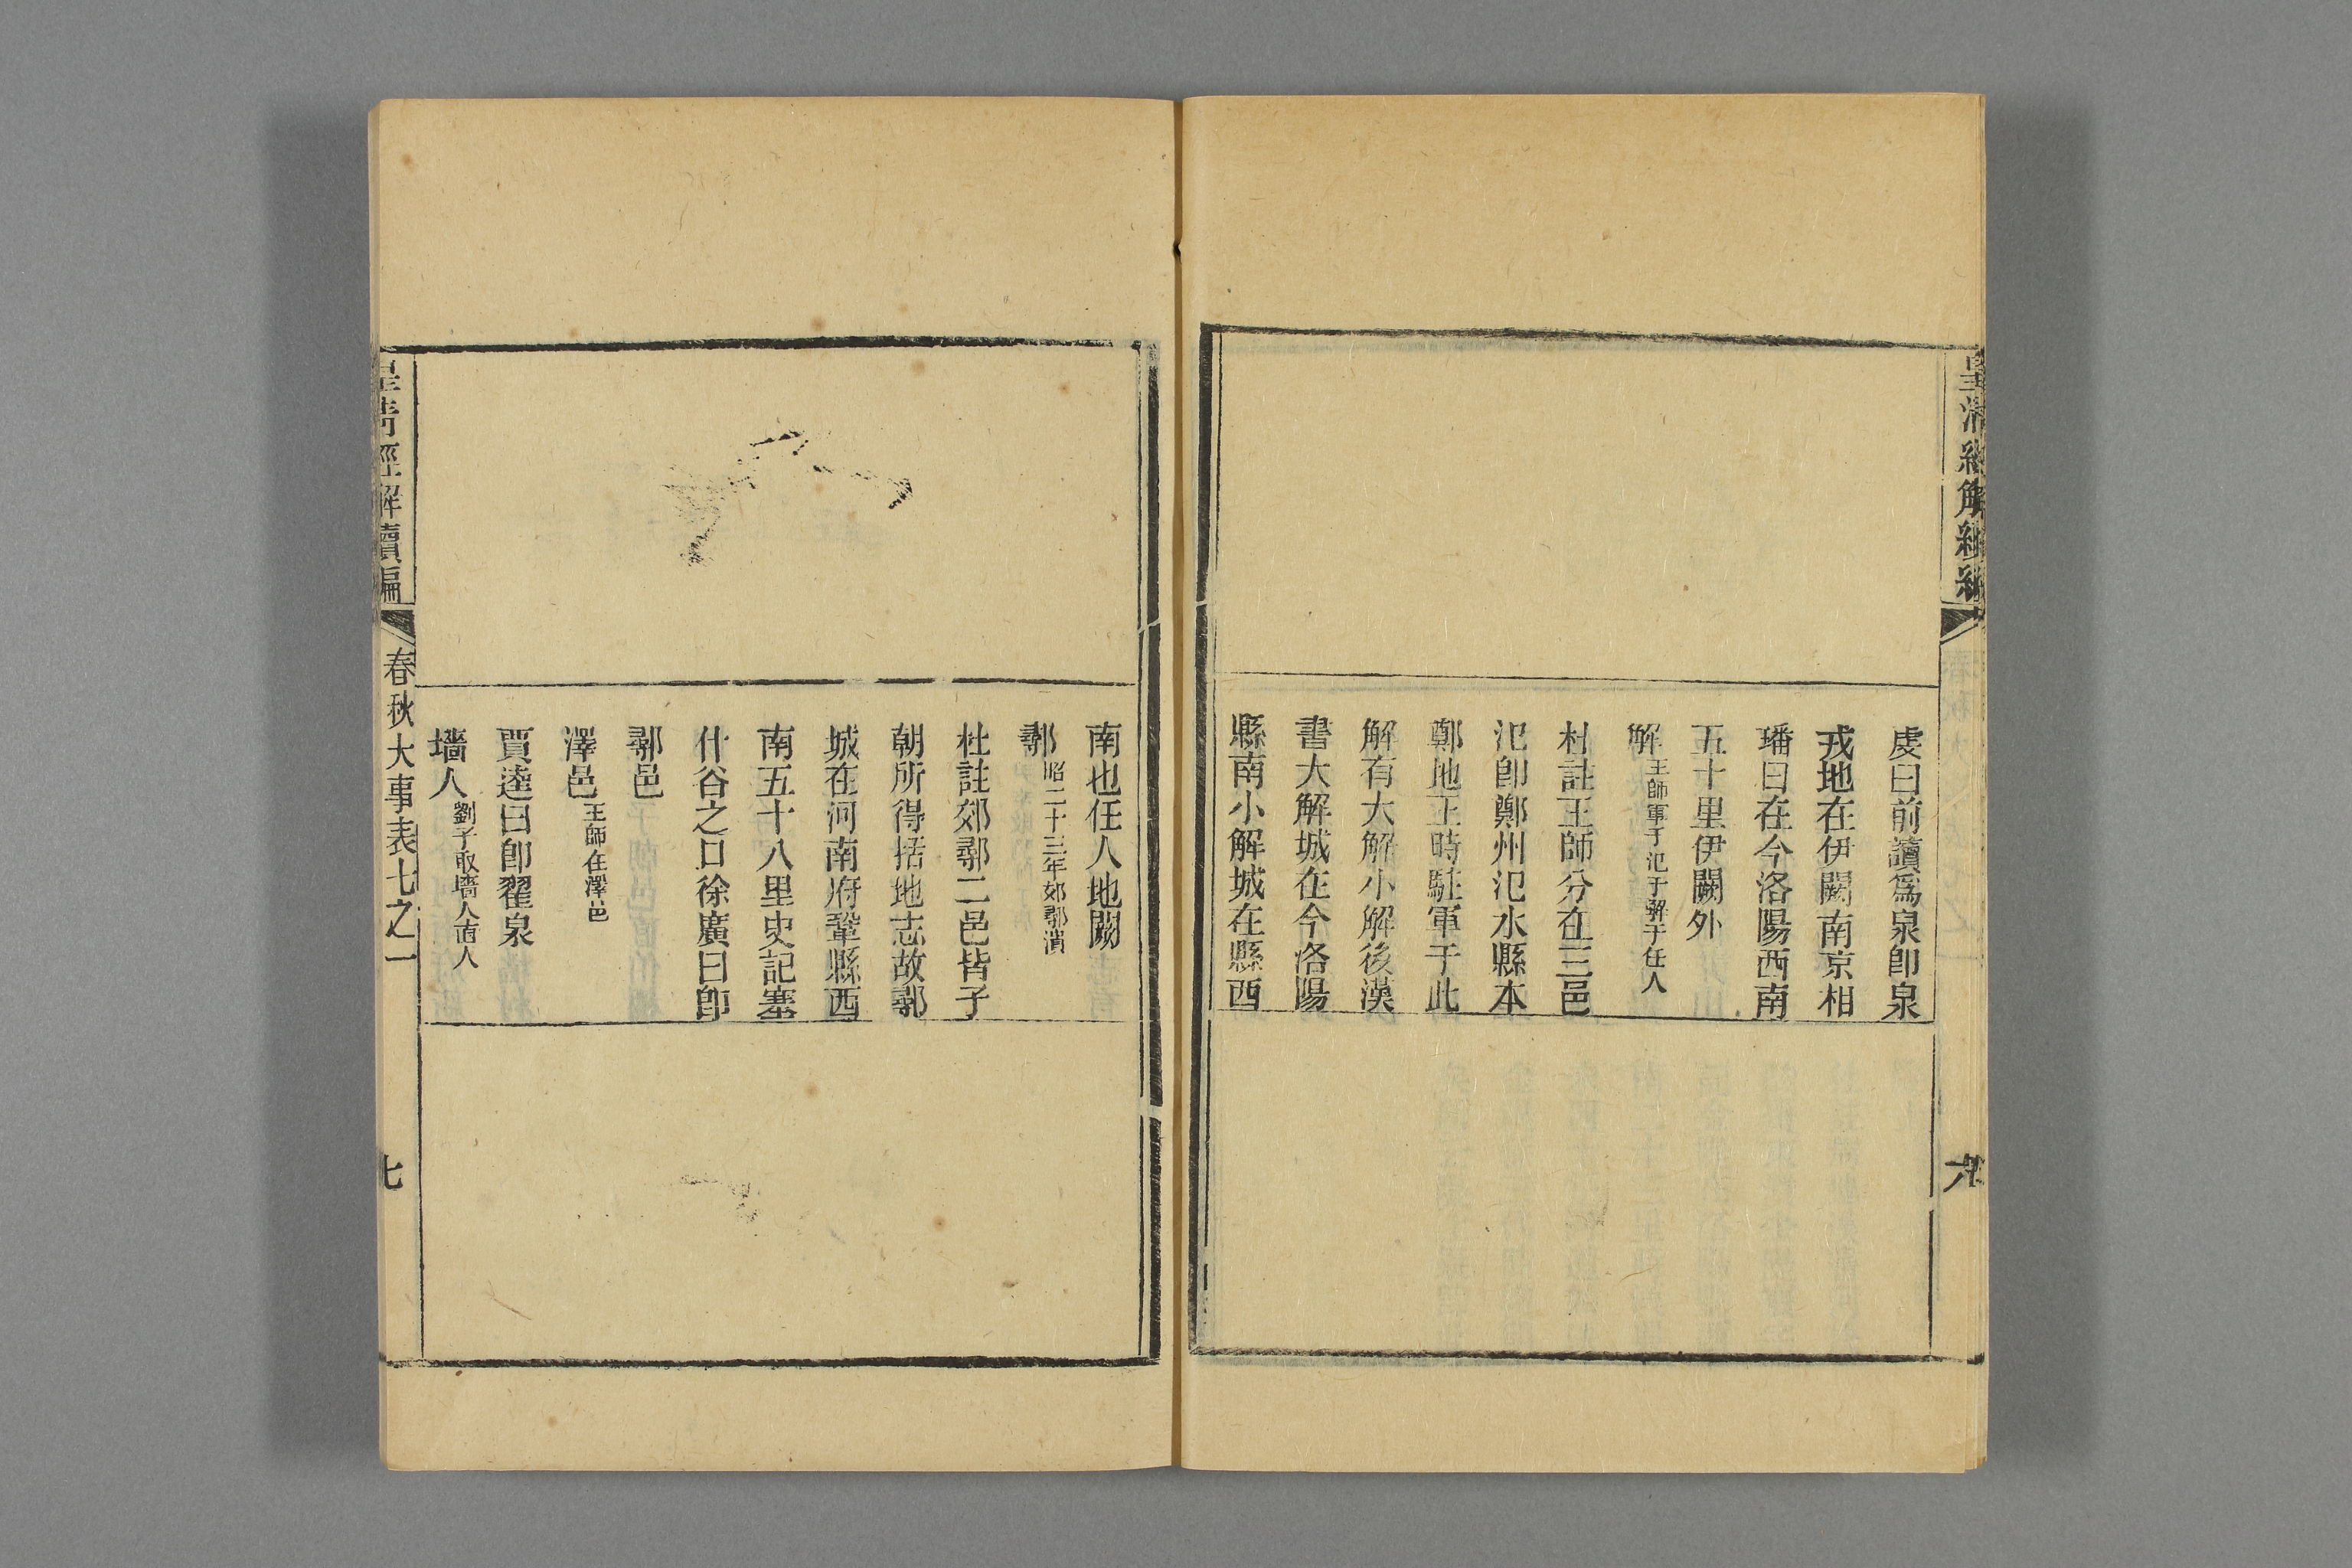 虔曰前讀爲泉卽泉
戎地在伊闕南京相
璠曰在今洛陽西南
五十里伊闕外
解王師軍于氾于解于任人
杜註王師分在三邑
氾卽鄭州氾水縣本
鄭地王時駐軍于此
解有大解小解後漢
書大解城在今洛陽
縣南小解城在縣西
南也任人地闕
鄩昭二十三年郊鄩潰
杜註郊鄩二邑皆子
朝所得括地志故鄩
城在河南府鞏縣西
南五十八里史記塞
什谷之口徐廣曰卽
鄩邑
澤邑王師在澤邑
賈逵曰卽翟泉
墻人劉子取墻人直人
皇清經解續編
春秋大事表七之一
七